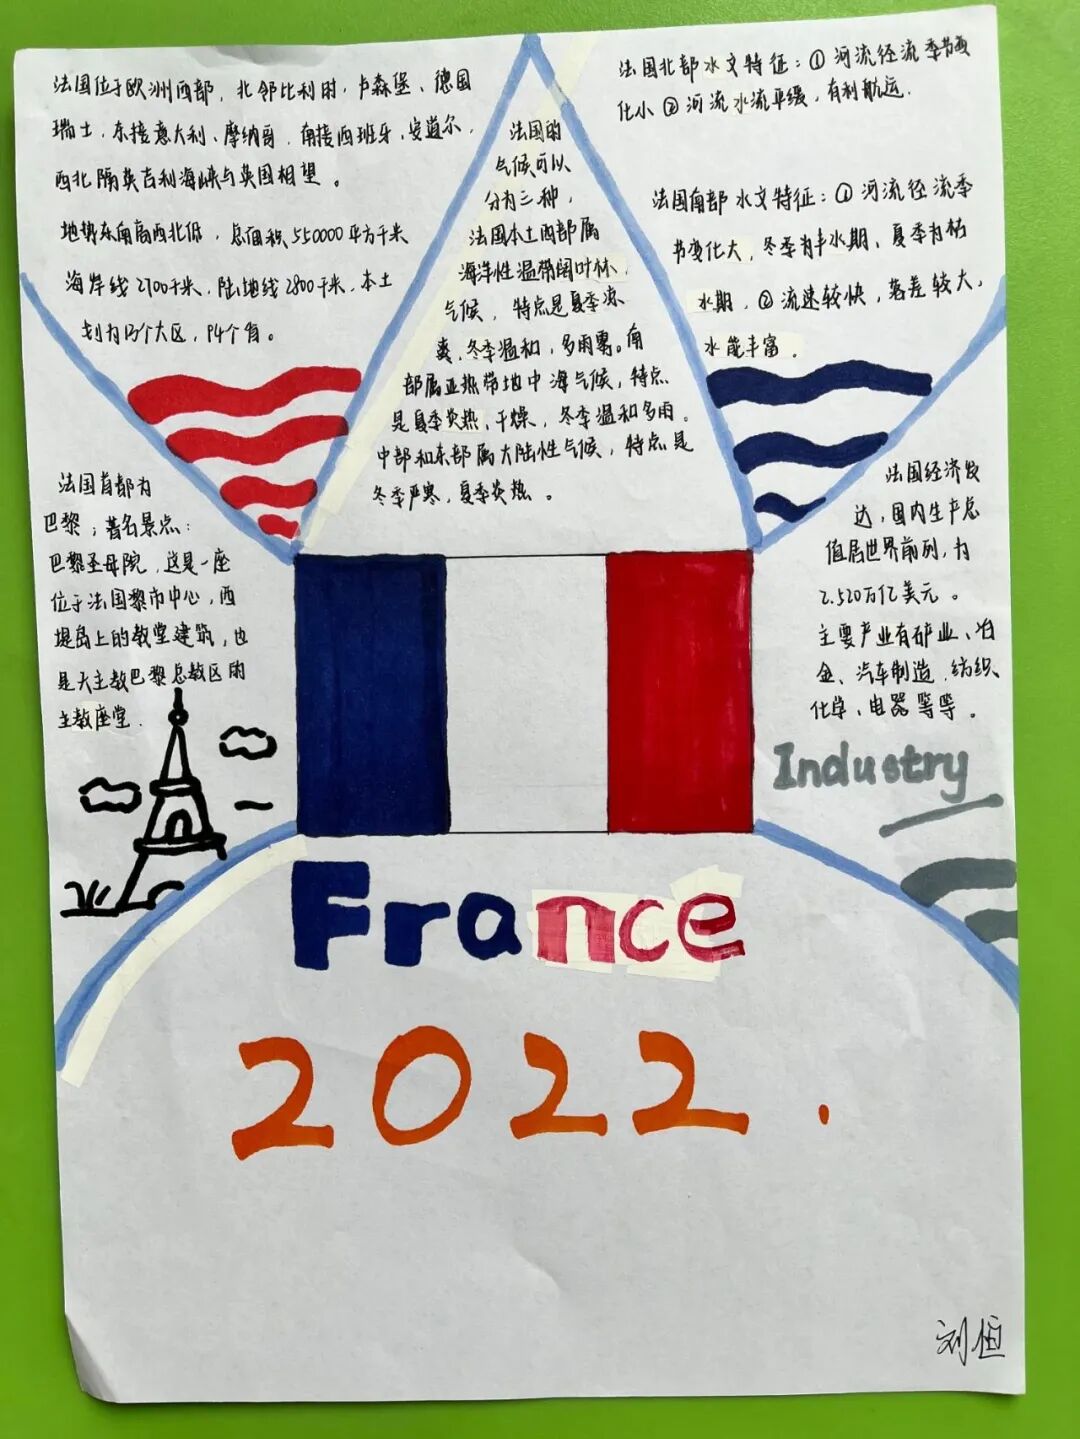 法国位于欧洲西部，北邻比利时，卢森堡、德国
瑞士，东接意大利、摩纳哥，南接西班牙，安道尔，
西北隔英吉利海峡与英国相望。
地势东南高西北低，总面积550000平方千米
海岸线2700千米，陆地线2800千米，本土
划为13个大区，94个省。
法国的
气候可以
分为三种，
法国本土西部属
海洋性温带阔叶林
气候，特点是夏季凉
爽，冬季温和，多雨雾。南
部属亚热带地中海气候，特点
是夏季炎热、干燥，冬季温和多雨。
中部和东部属大陆性气候，特点是
冬季严寒，夏季炎热。
法国北部水文特征：①河流径流季节变
化小②河流水流平缓，有利航运.
法国南部水文特征：①河流径流季
节变化大，冬季为丰水期、夏季为枯
水期，②流速较快，落差较大，
水能丰富.
法国首都为
巴黎；著名景点：
巴黎圣母院，这是一座
位于法国黎市中心，西
堤岛上的教堂建筑，也
是天主教巴黎总教区的
主教座堂.
法国经济发
达，国内生产总
值居世界前列，为
2.520万亿美元。
主要产业有矿业、冶
金、汽车制造、纺织
化学、电器等等。
Industry
France
2022.
刘恒